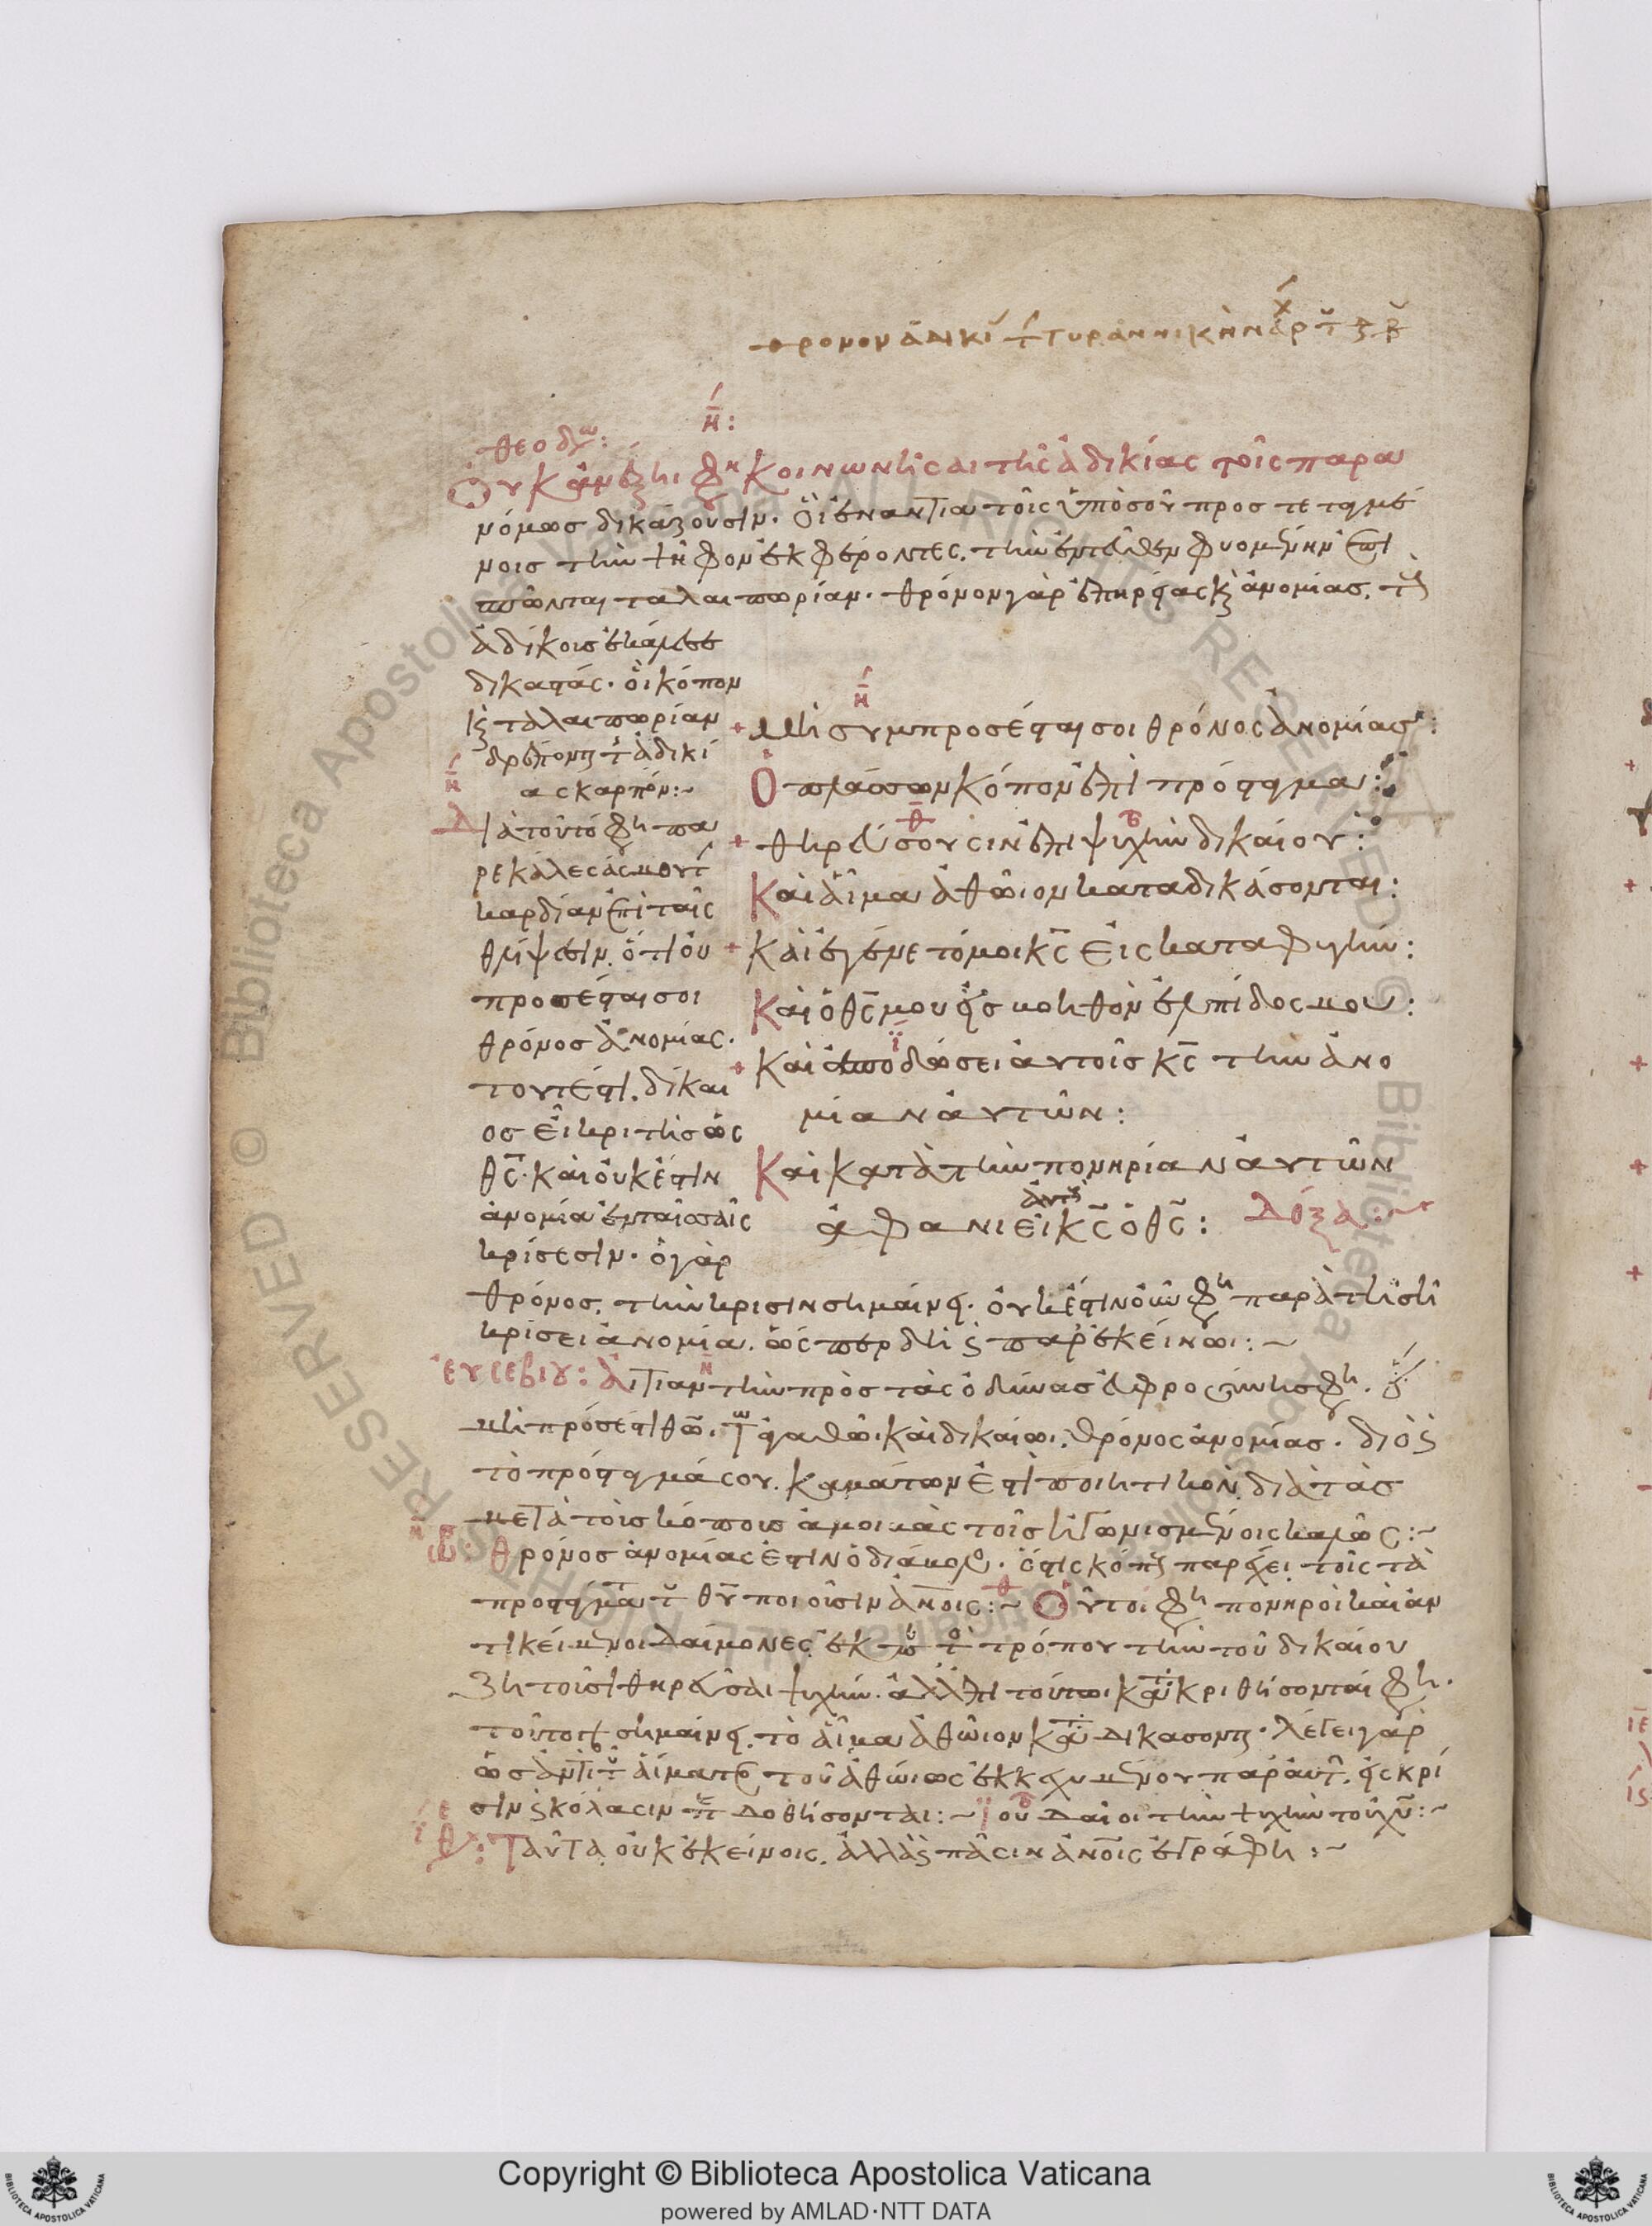 θρονον ἀνκι τ τυραννικὴν ἀρχ τ
η:
θεοδω:
Οὐκ ἀνέξηι φη κοινωνῆσαι τῆς ἀδικίας τοῖς παρα
νόμως δικάζουσιν. οἳ ἐναντία τοῖς ὑπὸ σοῦ προστεταγμέ
νοις τὴν ψῆφον ἐκφέροντες. τὴν ἐντεῦθεν φυομένην
σπῶνται ταλαιπωρίαν. θρόνον γὰρ ἀνομίας. τοὺς
ἀδίκους ἐκάλεσε
δικαστάς. οἱ κόπον
κ ταλαιπωρίαν
δρέπονται τ ἀδικί
ας καρπόν:~
η
Μὴ συμπροσέσται σοι θρόνος ἀνομίας:
Ὁ πλάσσων κόπον ἐπὶ πρόσταγμα:
θηρεύσουσιν ἐπὶ ψυχὴν δικαίου:
Καὶ αἷμα ἀθῶιον καταδικάσονται:
Καὶ ἐγένετό μοι κς εἰς καταφυγήν:
Καὶ ὁ θς μου εἰς βοηθὸν ἐλπίδος μου:
Καὶ ἀποδώσει αὐτοῖς κς τὴν ἀνο
μίαν αὐτῶν:
Καὶ κατὰ τὴν πονηρίαν αὐτῶν
ἀφανιεῖ κς ὁ θς: Δόξα:~
αὐτους
η
Διὰ τοῦτό φη πα
ρεκάλεσάς μου τ
καρδίαν ἐπὶ ταῖς
θλίψεσιν. ὅτι οὐ
προσέσται σοι
θρόνος ἀνομίας.
τουτέστι. δίκαι
ος εἶ κριτὴς ὡς
θς. καὶ οὐκ ἔστιν
ἀνομία ἐν ταῖς σαῖς
κρίσεσιν. ὁ γὰρ
θρόνος. τὴν κρίσιν σημαίνει. οὐκ ἔστιν οὖν φη παρὰ τῆι σῆι
κρίσει ἀνομία. ὥσπερ δὴ ϛ παρ' ἐκείνωι:~
εὐσεβίου: Αἰτίαν τὴν πρὸς τὰς ὀδύνας εὐφροσύνης φη.
μὴ πρόσεστι θω. τω ἀγαθῶι καὶ δικαίωι. θρόνος ἀνομίας. διὸ ϛ
τὸ πρόσταγμά σου. καμάτων ἐστὶ ποιητικὸν διὰ τὰς
μετὰ τοὺς κόπους ἀμοιβὰς τοῖς ἠγωνισμένοις καλῶς:~
θρόνος ἀνομίας ἐστὶν ὁ διάβολο. ὅστις κόπους παρέχει τοῖς τὰ
προστάγματα τ θυ ποιοῦσιν ἀνοις:~ Οὗτοι φη πονηροὶ καὶ ἀν
τικείμενοι δαίμονες ἐκ τρόπου τὴν τοῦ δικαίου
ζητοῦσι θηρεῦσαι ψυχήν. ἀλλ' ἐπὶ τούτωι κατακριθήσονταί φη.
τοῦτο σημαίνει. τὸ αἷμα ἀθῶιον καταδικάσονται. λέγει γὰρ
ὡς ἀντὶ τ αἵματος τοῦ ἀθώιως ἐκκεχυμένου παρ' αὐτ. εἰς κρί
σιν ϛ κόλασιν δοθήσονται:~ ἰουδαῖοι τὴν ψυχὴν τοῦ χυ:~
Ταῦτα οὐκ ἐκείνοις. ἀλλὰ ϛ πᾶσιν ἀνοις ἐγράφη:~
Copyright © Biblioteca Apostolica Vaticana
powered by AMLAD·NTT DATA